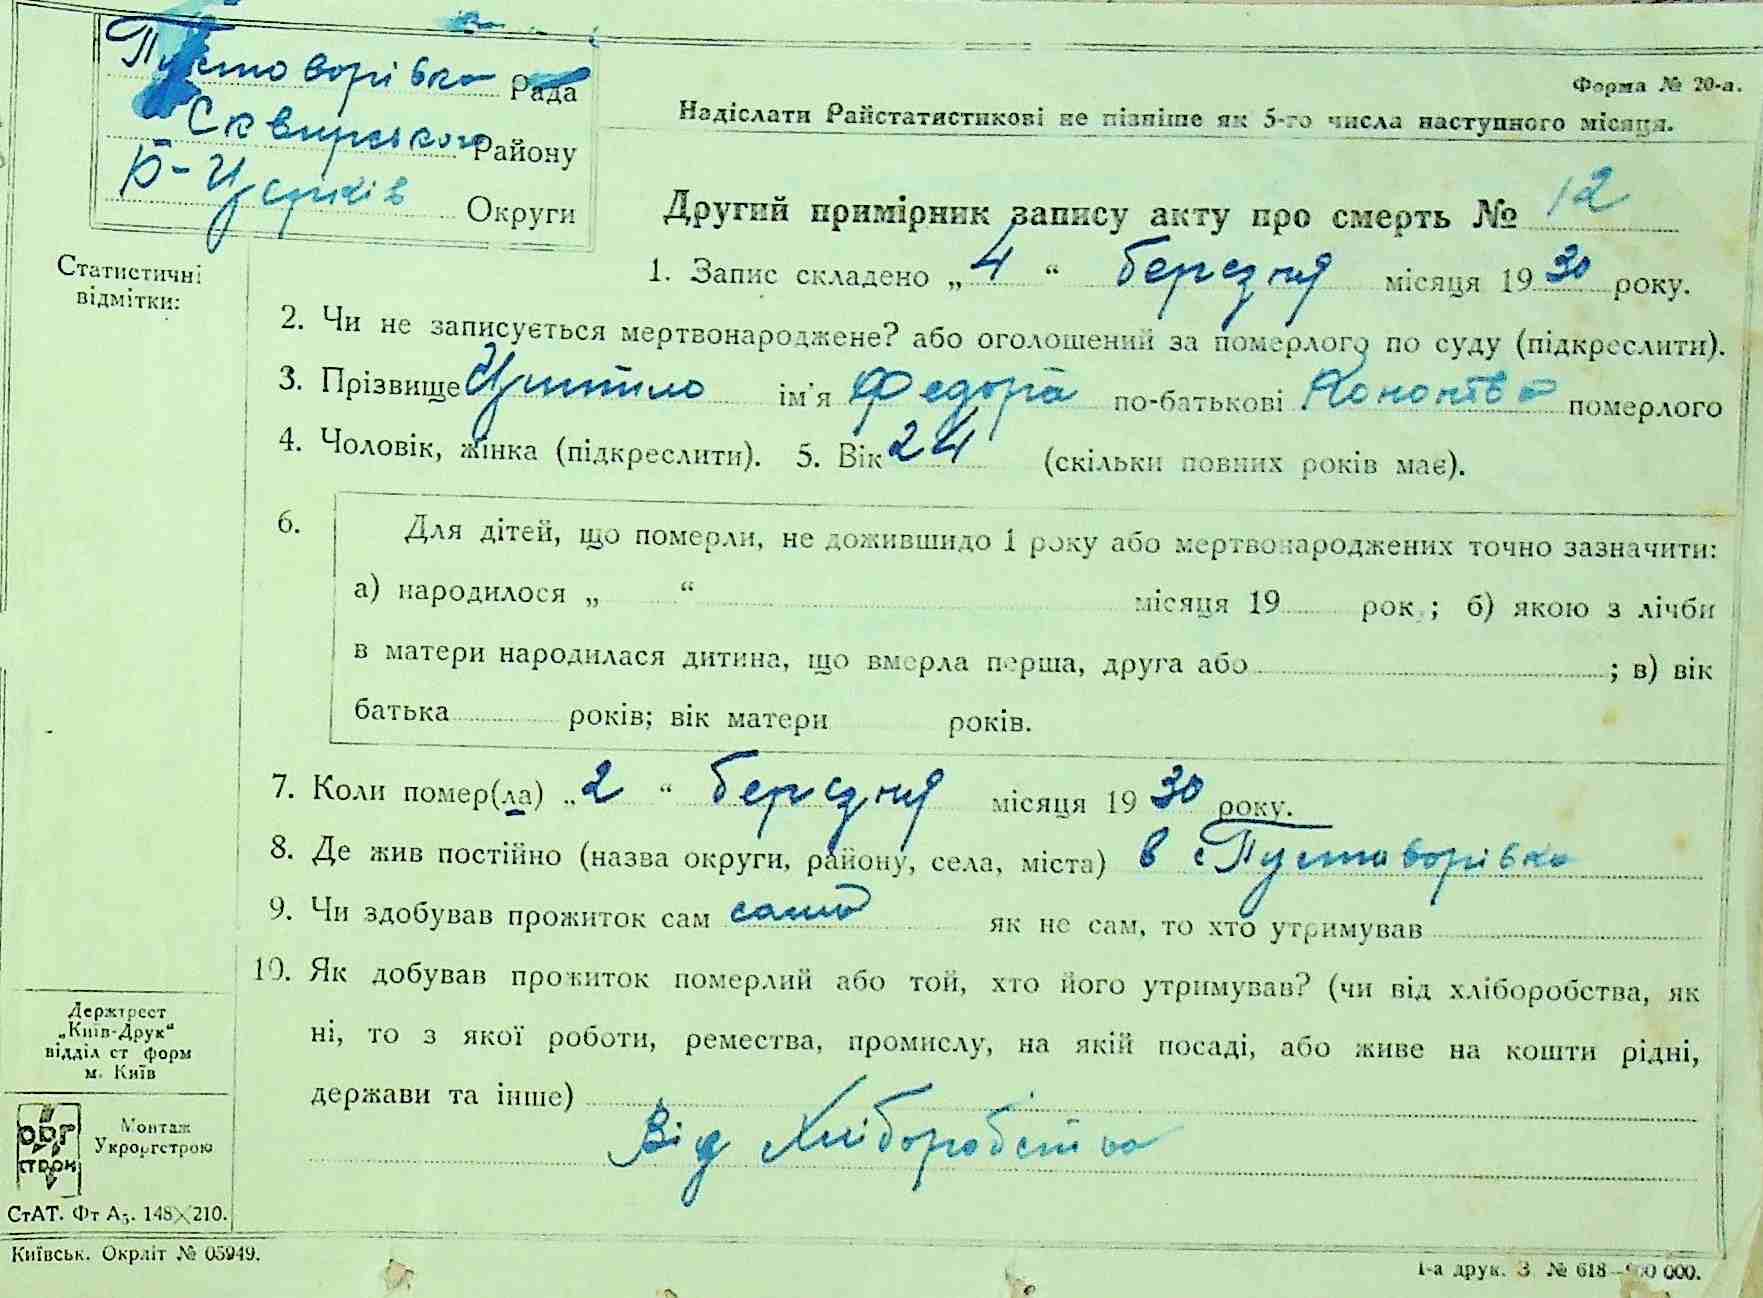 Пустоворівка Рада
Сквирського Району
Б-Церків Округи
Форма № 20-а.
Надіслати Райстатистикові не пізніше як 5-го числа наступного місяця.
Другий примірник запису акту про смерть № 12
Статистичні
відмітки:
1. Запис складено „4“ березня місяця 1930 року.
2. Чи не записується мертвонароджене? або оголошений за померлого по суду (підкреслити).
3. Прізвище ім'я Федора по-батькові померлого
4. Чоловік, жінка (підкреслити). 5. Вік 24 (скільки повних років має).
6. Для дітей, що померли, не дожившидо 1 року або мертвонароджених точно зазначити:
а) народилося „ “ місяця 19 рок ; б) якою з лічби
в матери народилася дитина, що вмерла перша, друга або ; в) вік
батька років; вік матери років.
7. Коли помер(ла) „2“ березня місяця 1930 року.
8. Де жив постійно (назва округи, району, села, міста) в с Пустоворівка
9. Чи здобував прожиток сам сама як не сам, то хто утримував
10. Як добував прожиток померлий або той, хто його утримував? (чи від хліборобства, як
ні, то з якої роботи, ремества, промислу, на якій посаді, або живе на кошти рідні,
держави та інше)
Від Хліборобства
Держтрест
„Київ-Друк“
відділ ст форм
м. Київ
ОРГ
СТРОЙ
Монтаж
Укроргстрою
СтАТ. Фт А5. 148×210.
Київськ. Окрліт № 05949.
1-а друк. З. № 618—900 000.